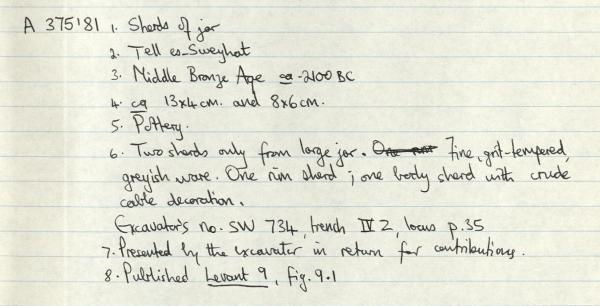 A 375'81 1. Sherds of jar
2. Tell es-Sweyhat
3. Middle Bronze Age ca -2100 BC
4. ca 13x4cm. and 8x6cm.
5. Pottery.
6. Two sherds only from large jar. Fine, grit-tempered,
greyish ware. One rim sherd; one body sherd with crude
cable decoration.
Excavator's no. SW 734, trench IV Z, locus p.35
7. Presented by the excavator in return for contributions.
8. Published Levant 9, fig. 9.1